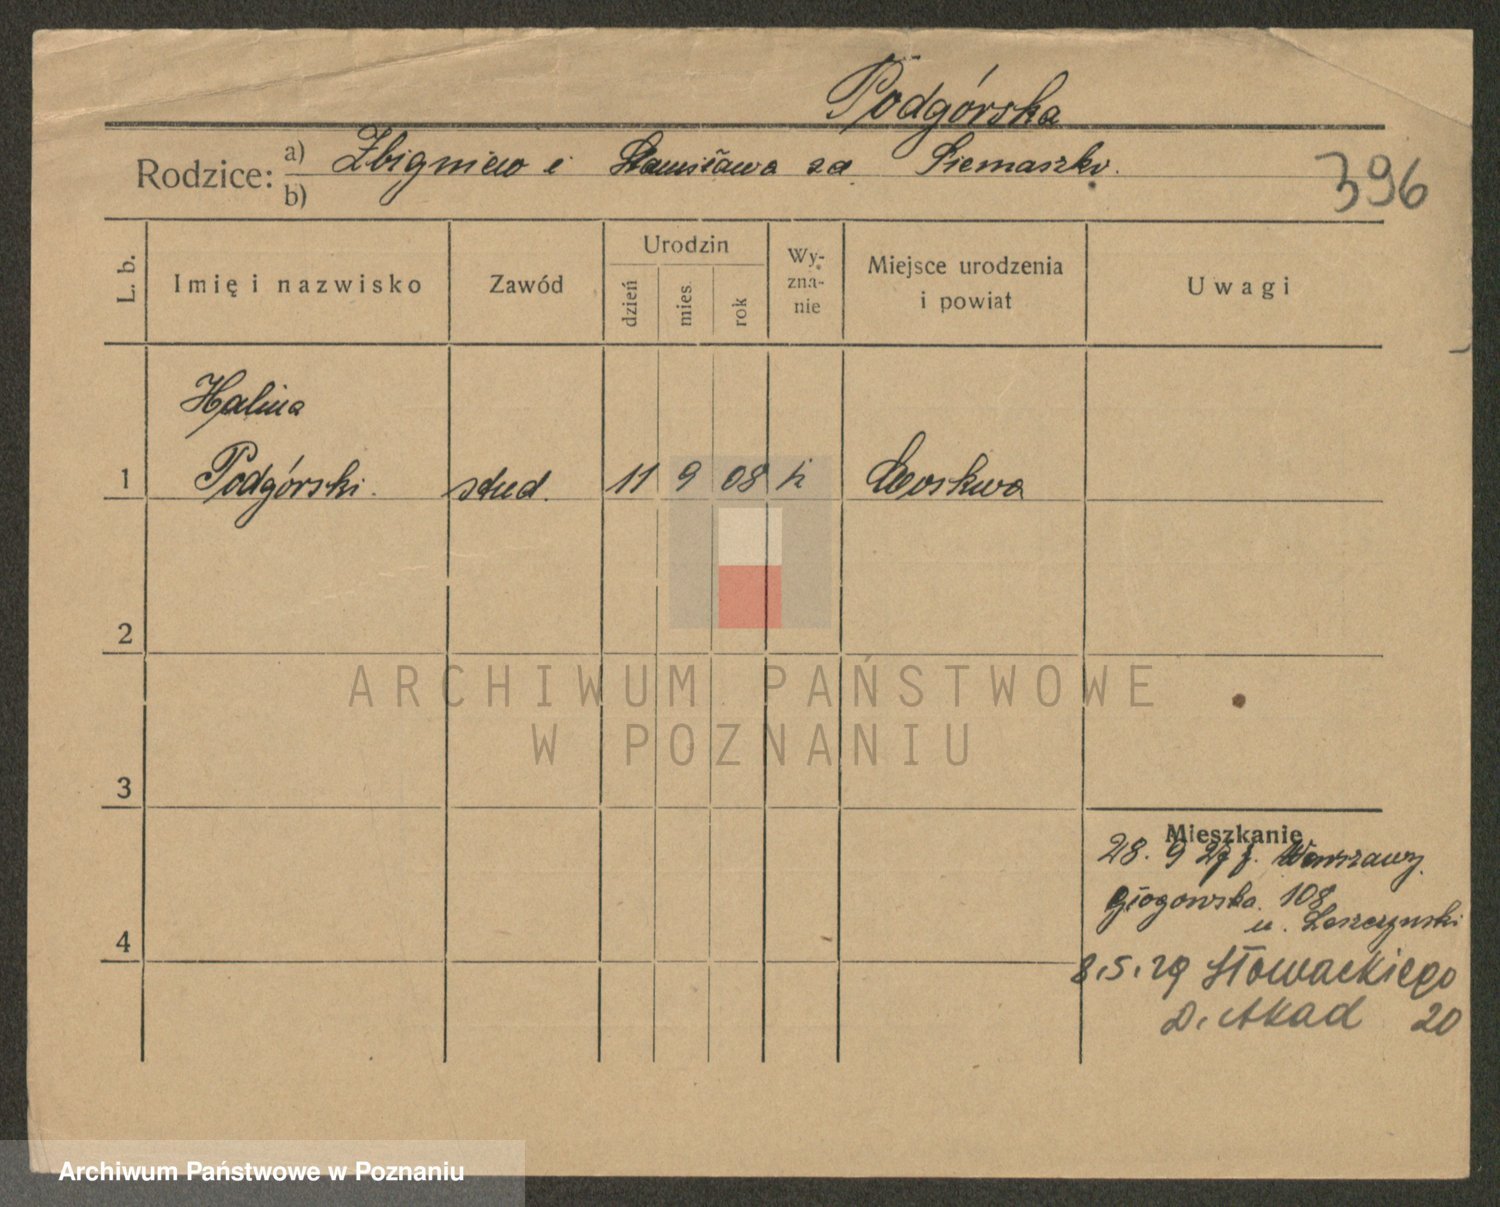 Podgórska
Rodzice: a) Zbigniew i Stanisława za Siemaszko.
b)
396
L. b. Imię i nazwisko Zawód Urodzin dzień mies. rok Wy-zna-nie Miejsce urodzenia i powiat Uwagi
Halina
1 Podgórski. stud. 11 9 08 k Moskwa
2
ARCHIWUM PAŃSTWOWE
W POZNANIU
3
Mieszkanie
28. 9 27 z. Warszawy.
Głogowska 108
u. Leszczyński
4
8.5.29 Słowackiego
D. Akad 20
Archiwum Państwowe w Poznaniu